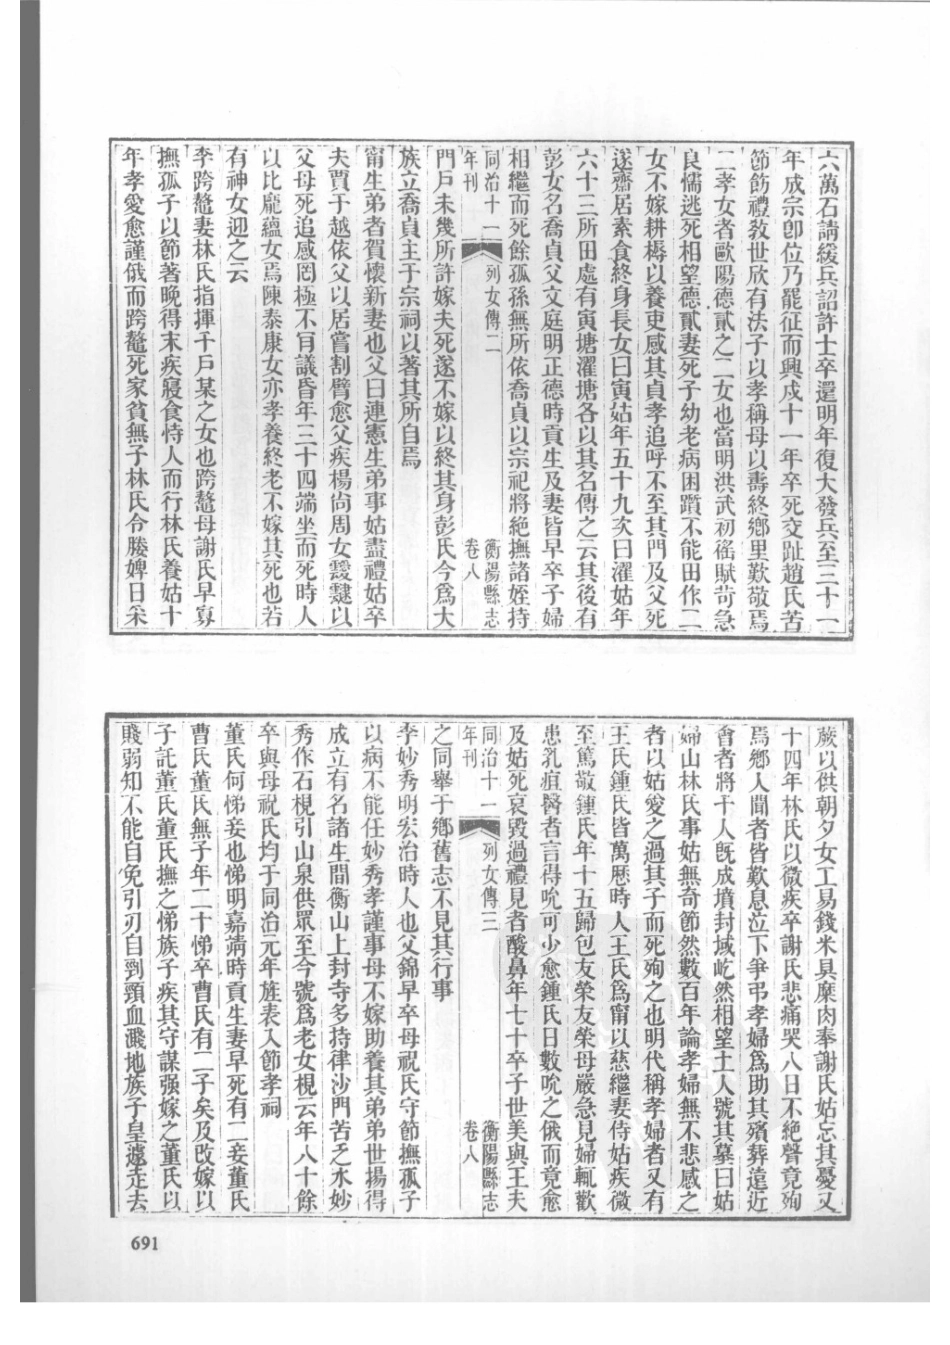 六萬石請緩兵詔許士卒還明年復大發兵至三十一
年成宗卽位乃罷征而興戍十一年卒死交趾趙氏苦
節飭禮敎世欣有法子以孝稱母以壽終鄉里歎敬焉
二孝女者歐陽德貳之二女也當明洪武初徭賦苛急
良懦逃死相望德貳妻死子幼老病困躓不能田作二
女不嫁耕槈以養吏感其貞孝追呼不至其門及父死
遂齋居素食終身長女曰寅姑年五十九次曰濯姑年
六十三所田處有寅塘濯塘各以其名傳之云其後有
彭女名喬貞父文庭明正德時貢生及妻皆早卒子婦
相繼而死餘孤孫無所依喬貞以宗祀將絶撫諸姪持
同治十一年刊 列女傳二 衡陽縣志卷八
門戸未幾所許嫁夫死遂不嫁以終其身彭氏今爲大
族立喬貞主于宗祠以著其所自焉
甯生弟者賀懷新妻也父曰連憲生弟事姑盡禮姑卒
夫賈于越依父以居嘗割臂愈父疾楊尙周女靉靆以
父母死追感罔極不肎議昏年三十四端坐而死時人
以比龐蘊女焉陳泰康女亦孝養終老不嫁其死也若
有神女迎之云
李跨鼇妻林氏指揮千戸某之女也跨鼇母謝氏早寡
撫孤子以節著晚得末疾寢食恃人而行林氏養姑十
年孝愛愈謹俄而跨鼇死家貧無子林氏令媵婢日采
蕨以供朝夕女工易錢米具糜肉奉謝氏姑忘其憂又
十四年林氏以微疾卒謝氏悲痛哭八日不絶聲竟殉
焉鄉人聞者皆歎息泣下爭弔孝婦爲助其殯葬遠近
會者將千人旣成墳封域屹然相望土人號其墓曰姑
婦山林氏事姑無奇節然數百年論孝婦無不悲感之
者以姑愛之過其子而死殉之也明代稱孝婦者又有
王氏鍾氏皆萬厯時人王氏爲甯以慈繼妻侍姑疾微
至篤敬鍾氏年十五歸包友榮友榮母嚴急見婦輒歡
患乳疽醫者言得吮可少愈鍾氏日數吮之俄而竟愈
及姑死哀毀過禮見者酸鼻年七十卒子世美與王夫
同治十一年刊 列女傳三 衡陽縣志卷八
之同舉于鄉舊志不見其行事
李妙秀明宏治時人也父錦早卒母祝氏守節撫孤子
以病不能任妙秀孝謹事母不嫁助養其弟弟世揚得
成立有名諸生間衡山上封寺多持律沙門苦乏水妙
秀作石梘引山泉供眾至今號爲老女梘云年八十餘
卒與母祝氏均于同治元年旌表入節孝祠
董氏何悌妾也悌明嘉靖時貢生妻早死有二妾董氏
曹氏董氏無子年二十悌卒曹氏有二子矣及改嫁以
子託董氏董氏撫之悌族子疾其守謀强嫁之董氏以
賤弱知不能自免引刃自剄頸血濺地族子皇遽走去
691